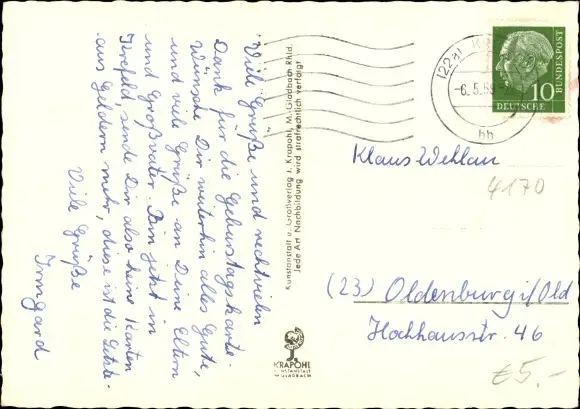 Viele Grüße und recht vielen
Dank für die Geburtstagskarte.
Wünsche Dir weiterhin alles Gute,
und viele Grüße an Deine Eltern
und Großvater. Bin jetzt in
Krefeld, sende Dir also keine Karten
aus Geldern mehr, diese ist die Letzte.
Viele Grüße
Irmgard
Kunstanstalt u. Großverlag J. Krapohl, M.-Gladbach Rhld.
Jede Art Nachbildung wird strafrechtlich verfolgt
KRAPOHL
KUNSTANSTALT
M. GLADBACH
(22a)
-6.5.59
hh
10
DEUTSCHE
BUNDESPOST
Klaus Wehlau
4170
(23) Oldenburg i/Old
Hochhausstr. 46
€5.-